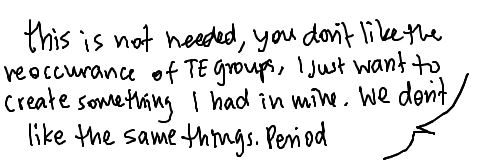 this is not needed, you don't like the
reoccurance of TE groups, I just want to
create something I had in mine. We don't
like the same things. Period